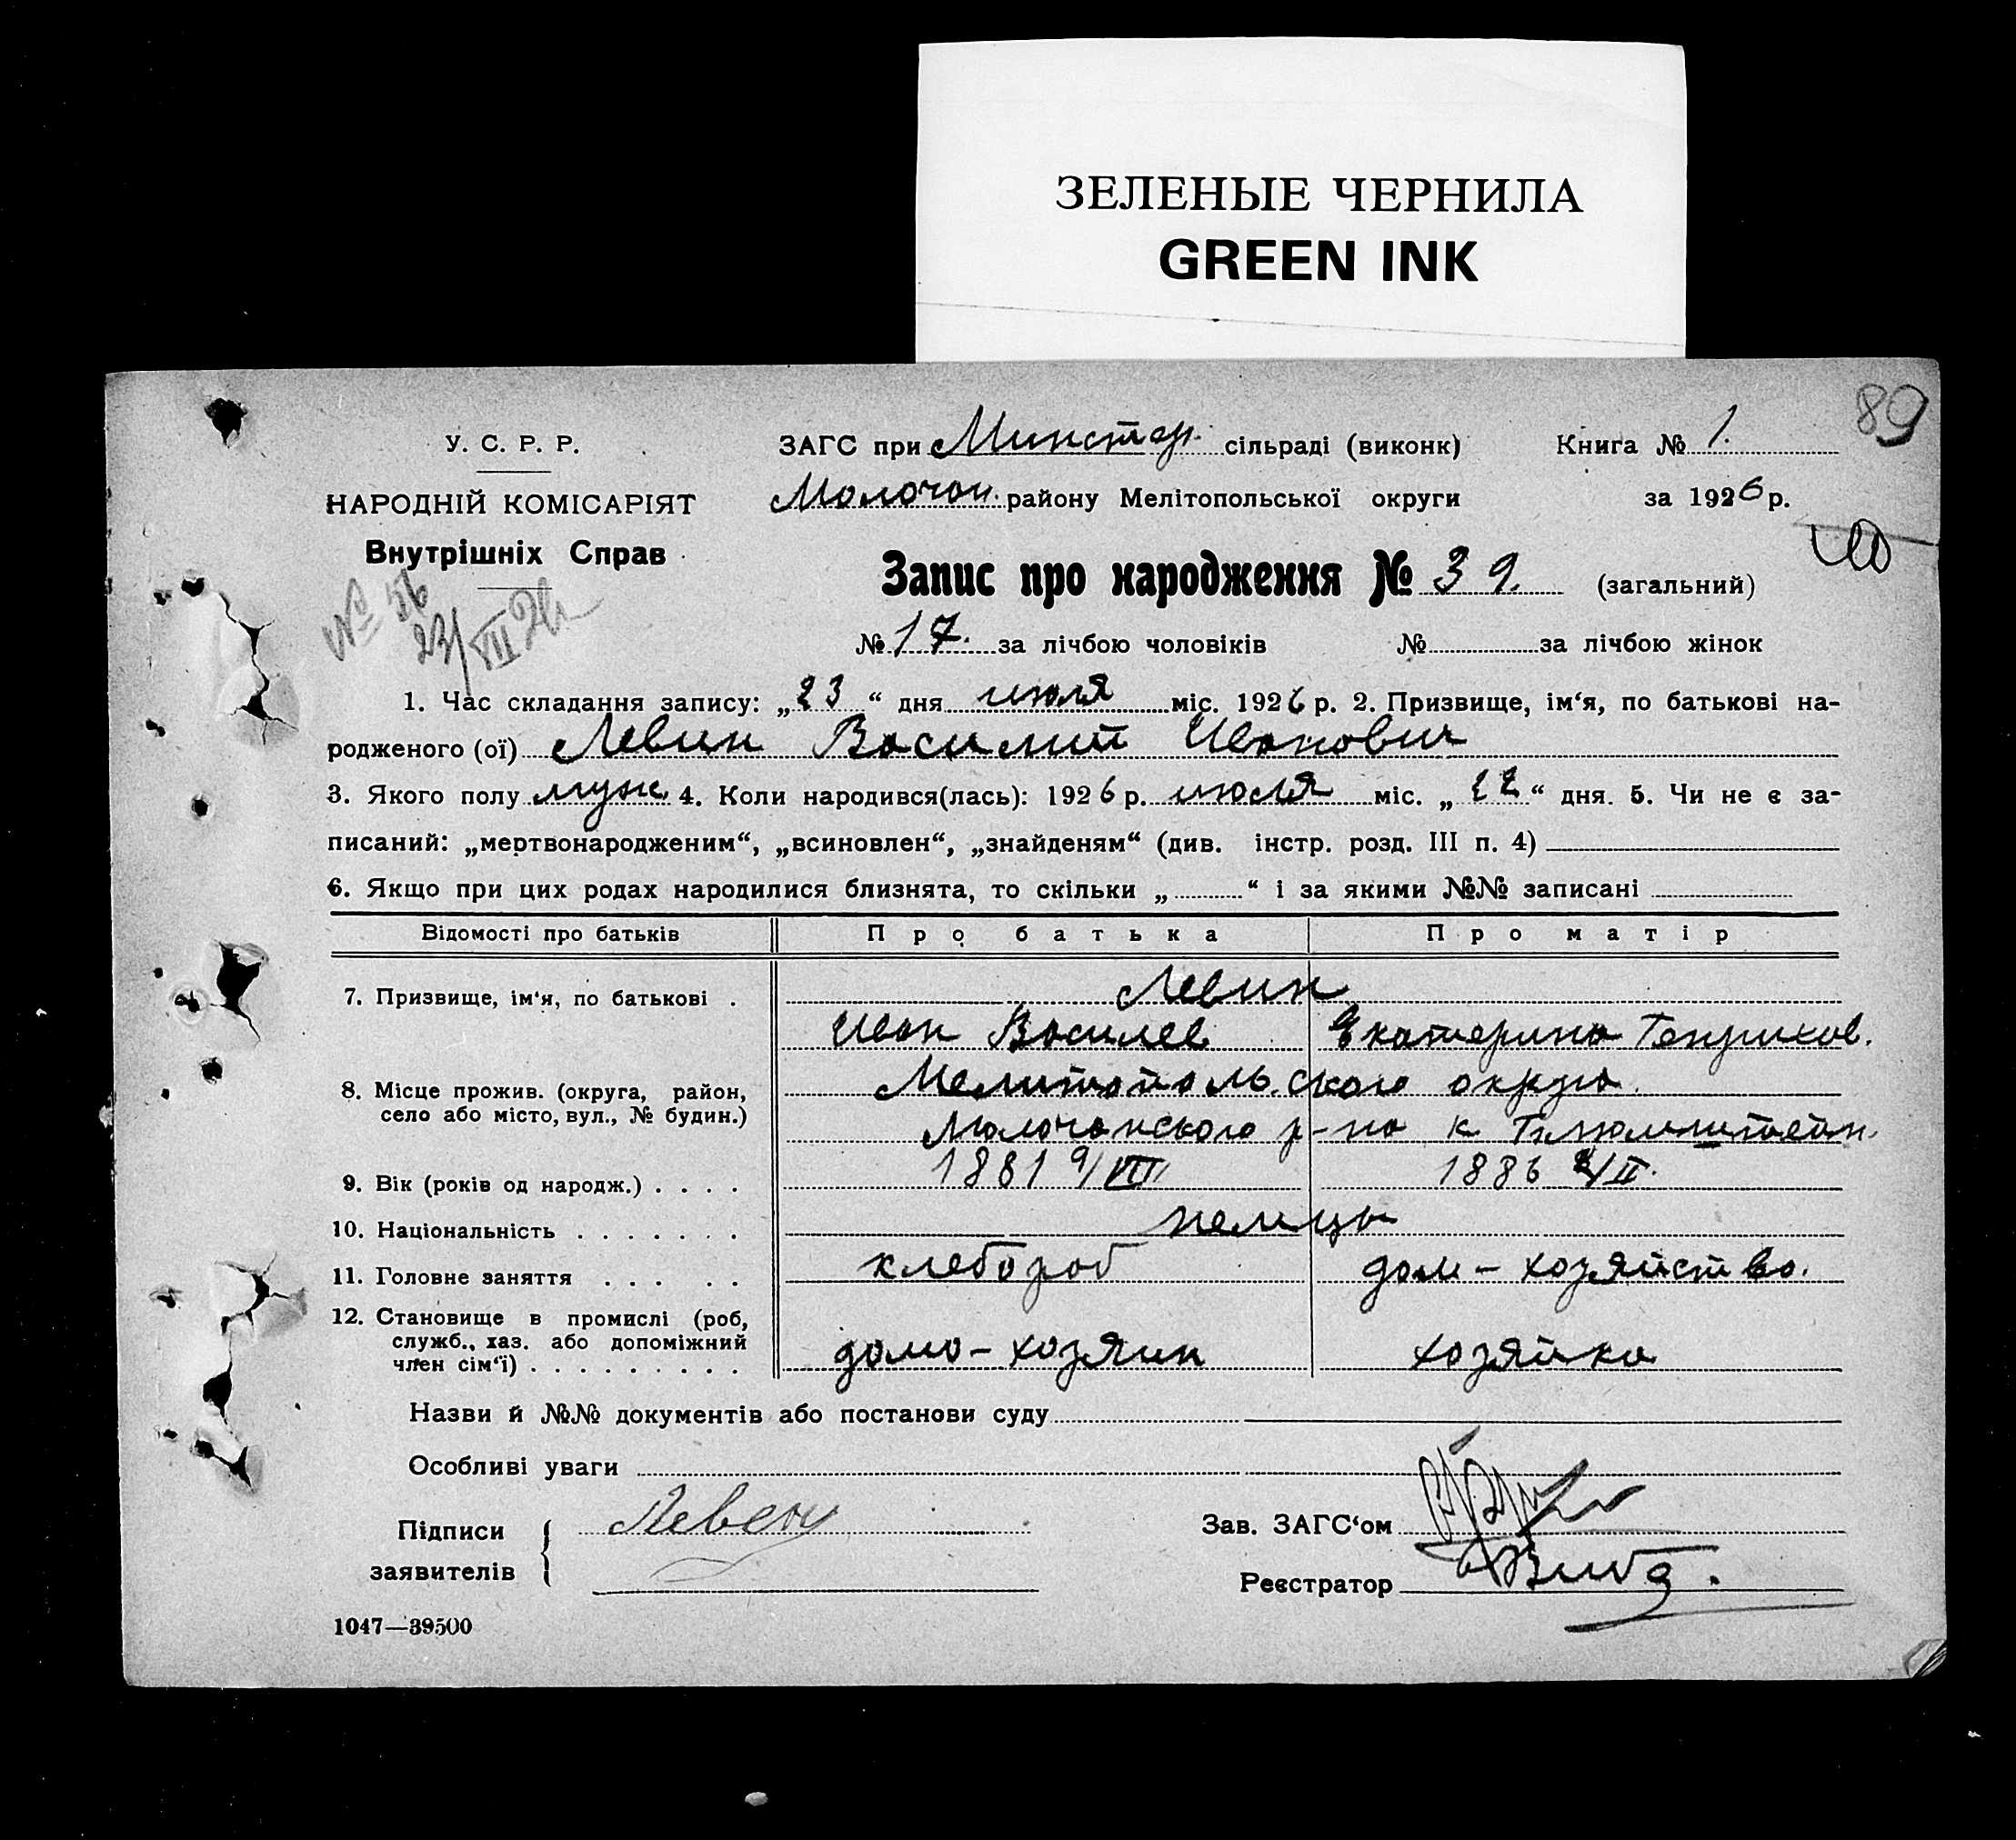 ЗЕЛЕНЫЕ ЧЕРНИЛА
GREEN INK
89
У. С. Р. Р.
НАРОДНІЙ КОМІСАРІЯТ
Внутрішніх Справ
№ 56
23/VII 26
ЗАГС при Минстер. сільраді (виконк) Книга № 1.
Молочан. району Мелітопольської округи за 1926 р.
Запис про народження № 39. (загальний)
№ 17. за лічбою чоловіків № за лічбою жінок
1. Час складання запису: „23“ дня июля міс. 1926 р. 2. Призвище, ім‘я, по батькові на-
родженого (ої) Левин Василий Иванович
3. Якого полу муж. 4. Коли народився(лась): 1926 р. июля міс. „22“ дня. 5. Чи не є за-
писаний: „мертвонародженим“, „всиновлен“, „знайденям“ (див. інстр. розд. III п. 4)
6. Якщо при цих родах народилися близнята, то скільки „ “ і за якими №№ записані
Відомості про батьків Про батька Про матір
7. Призвище, ім‘я, по батькові . Левин
Иван Василев Екатерина Генрихов.
8. Місце прожив. (округа, район, село або місто, вул., № будин.) Мелитопольского округа.
Молочанского р-на к. Блюмштейн.
9. Вік (років од народж.) . . . . 1881 9/VIII 1886 /II.
10. Національність . . . . . . . немцы
11. Головне заняття . . . . . хлебороб дом-хозяйство.
12. Становище в промислі (роб, служб., хаз. або допоміжний член сім‘ї) . . . . . . . . . домо-хозяин хозяйка
Назви й №№ документів або постанови суду
Особливі уваги
Підписи заявителів Левен
Зав. ЗАГС‘ом
Реєстратор
1047—39500